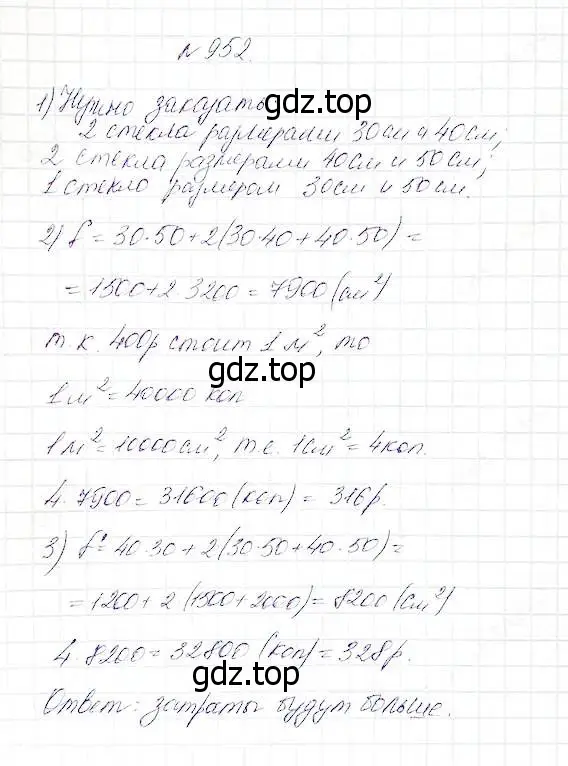 № 952.
1) Нужно заказать
gdz.top
2 стекла размерами 30см и 40см;
2 стекла размерами 40см и 50см;
1 стекло размером 30см и 50см.
2) S = 30·50+2(30·40+40·50) =
= 1500+2·3200 = 7900(см²)
т.к. 400р стоит 1 м², то
gdz.top
1 м² = 40000 коп
1 м² = 10000см², т.е. 1см² = 4коп.
4·7900 = 31600(коп) = 316р.
3) S = 40·30+2(30·50+40·50) =
= 1200+2(1500+2000) = 8200(см²)
4·8200 = 32800(коп) = 328р.
gdz.top
Ответ: затраты будут больше.